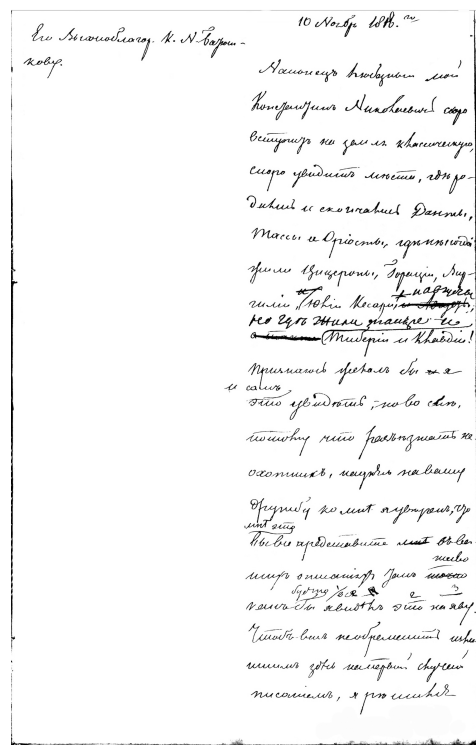 10 Ноябр 1818.го
Его Высокоблагор. К. N Батюш-
кову.
Наконецъ любезный мой
Константинъ Николаевичь скоро
вступитъ на землю классическую,
скоро увидитъ мѣста, гдѣ ро-
дились и скончались Данты,
Тассы и Аріосты, гдѣ нѣкогда
жили Цицероны, Гораціи, Вир-
гиліи, и Юліи Кесари,
но гдѣ жили также и
Тиверіи и Клавдіи!
Признаюсь желалъ бы и я
и самъ
это увидѣть, но во снѣ,
потому что разъѣзжать не
охотникъ, надѣясь на вашу
дружбу ко мнѣ я увѣренъ, что
мнѣ это
Вы все представите въ ва-
живо
шихъ описаніяхъ такъ
будто бы я 2 3
какъ бы я видѣлъ это на яву.
Чтобъ васъ не обременить излишнимъ
здѣсь на первый случай
писаніемъ, я рѣшился